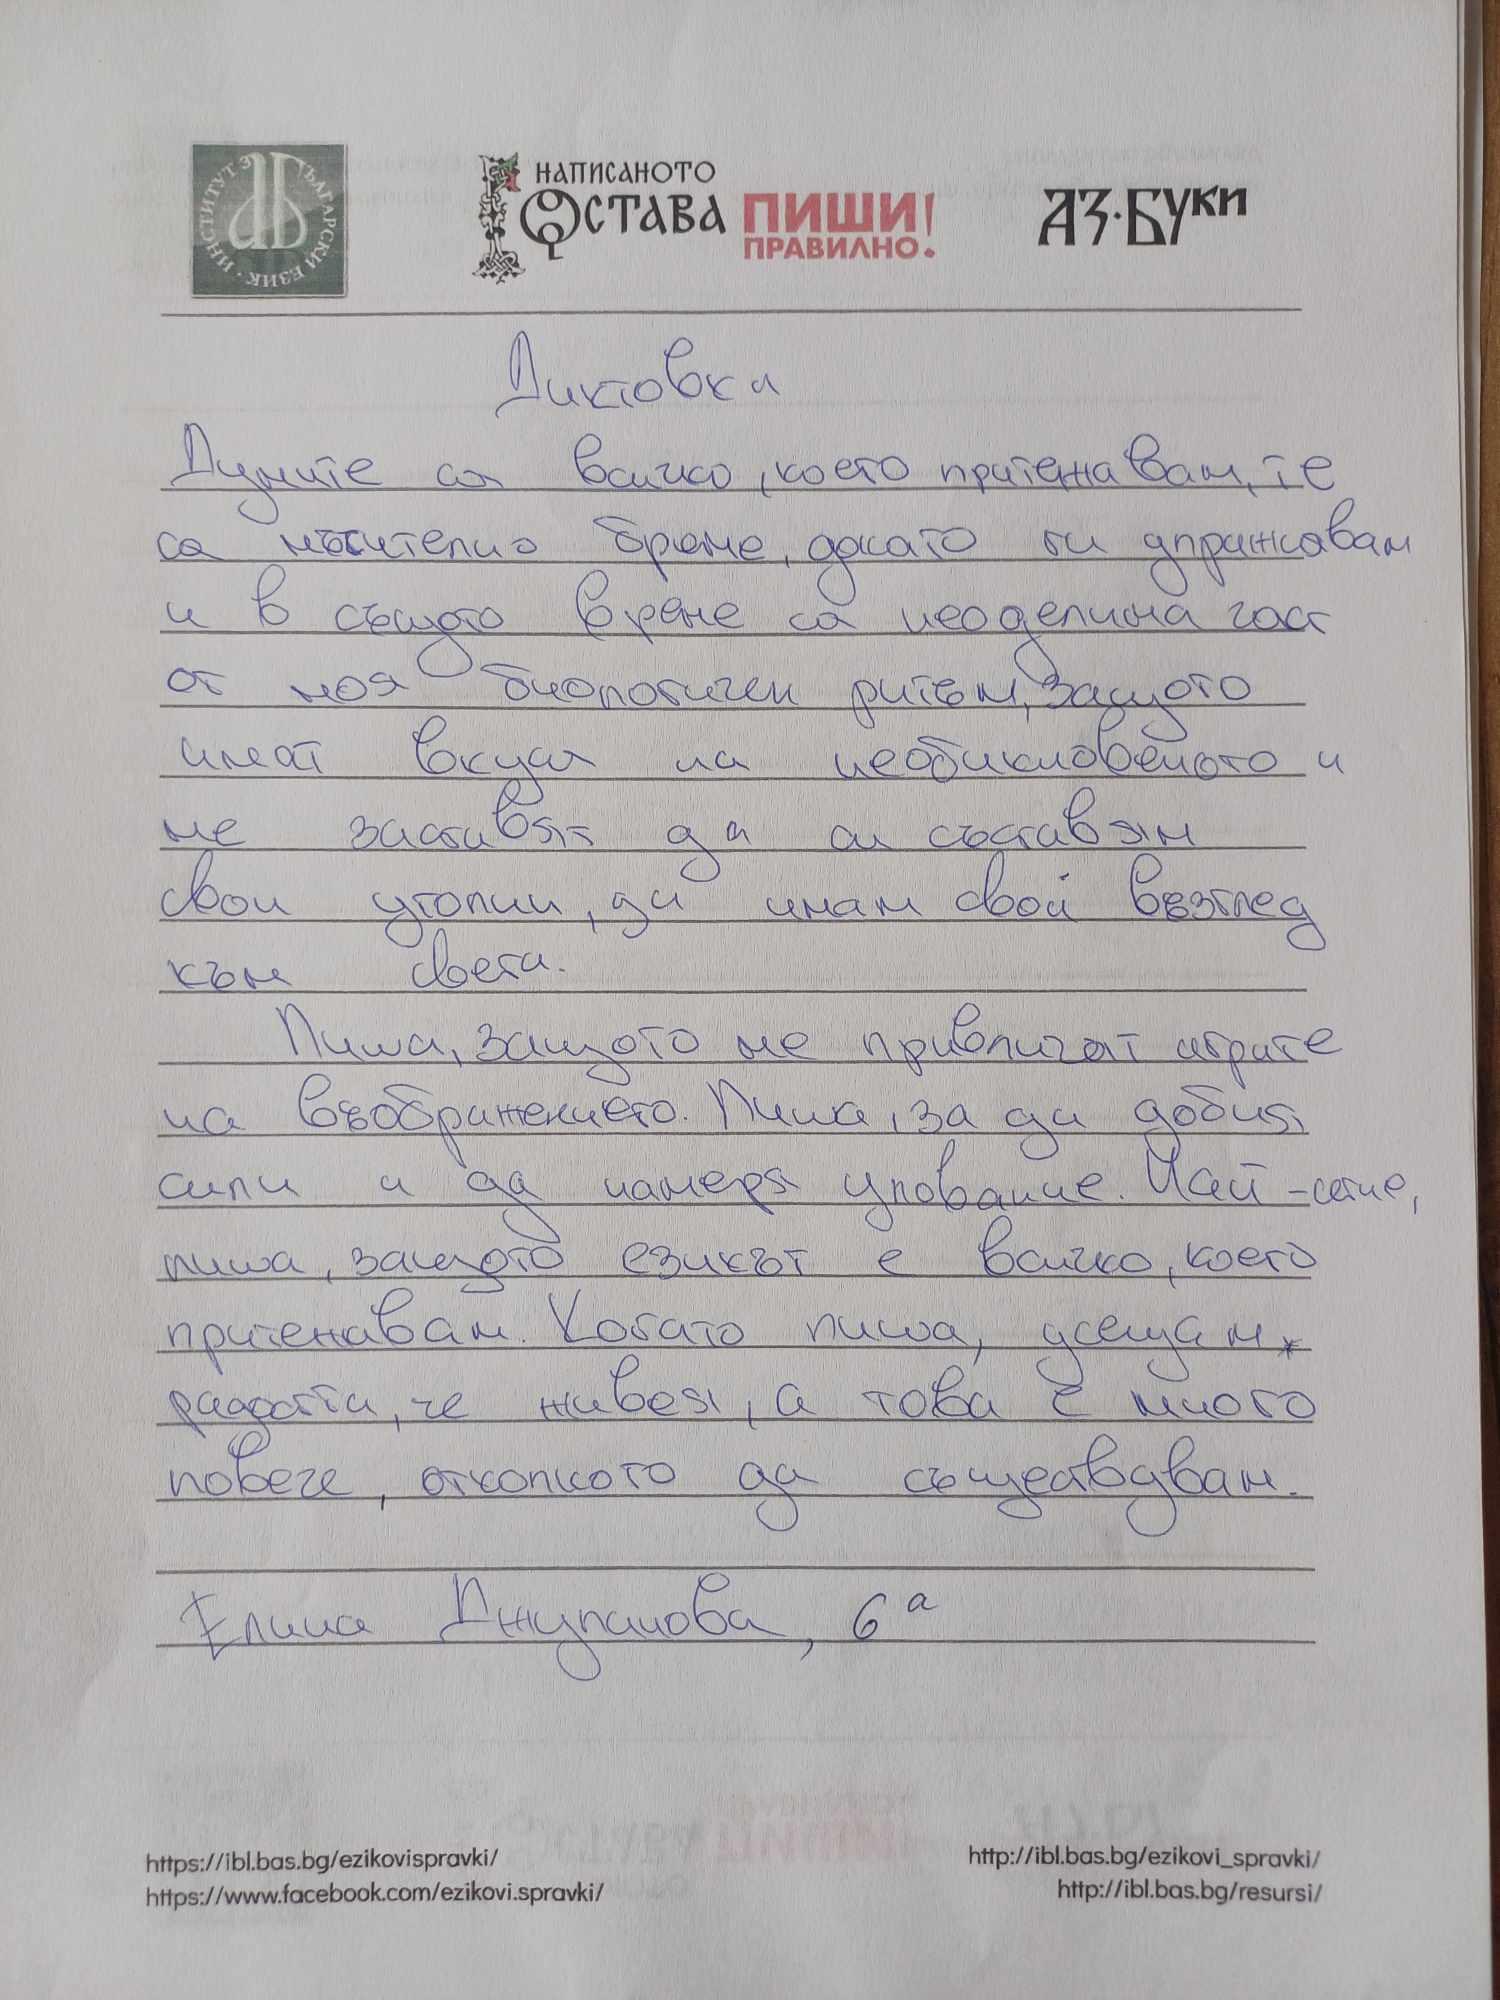 ИНСТИТУТ ЗА БЪЛГАРСКИ ЕЗИК
НАПИСАНОТО
ОСТАВА
ПИШИ
ПРАВИЛНО!
АЗ·БУКИ
Диктовка
Думите са всичко, което притежавам, те
са мъчително бреме, докато ги упражнавам
и в същото време са неоделима част
от моя биологичен ритъм, защото
имат вкуса на необикновеното и
ме заставят да си съставям
свои утопии, да имам свой възглед
към света.
Пиша, защото ме привличат игрите
на въображението. Пиша, за да добия
сили и да намеря упование. Най-сетне,
пиша, защото езикът е всичко, което
притежавам. Когато пиша, усещам
радостта, че живея, а това е много
повече, отколкото да съществувам.
Елина Джупанова, 6 а
https://ibl.bas.bg/ezikovispravki/
https://www.facebook.com/ezikovi.spravki/
http://ibl.bas.bg/ezikovi_spravki/
http://ibl.bas.bg/resursi/